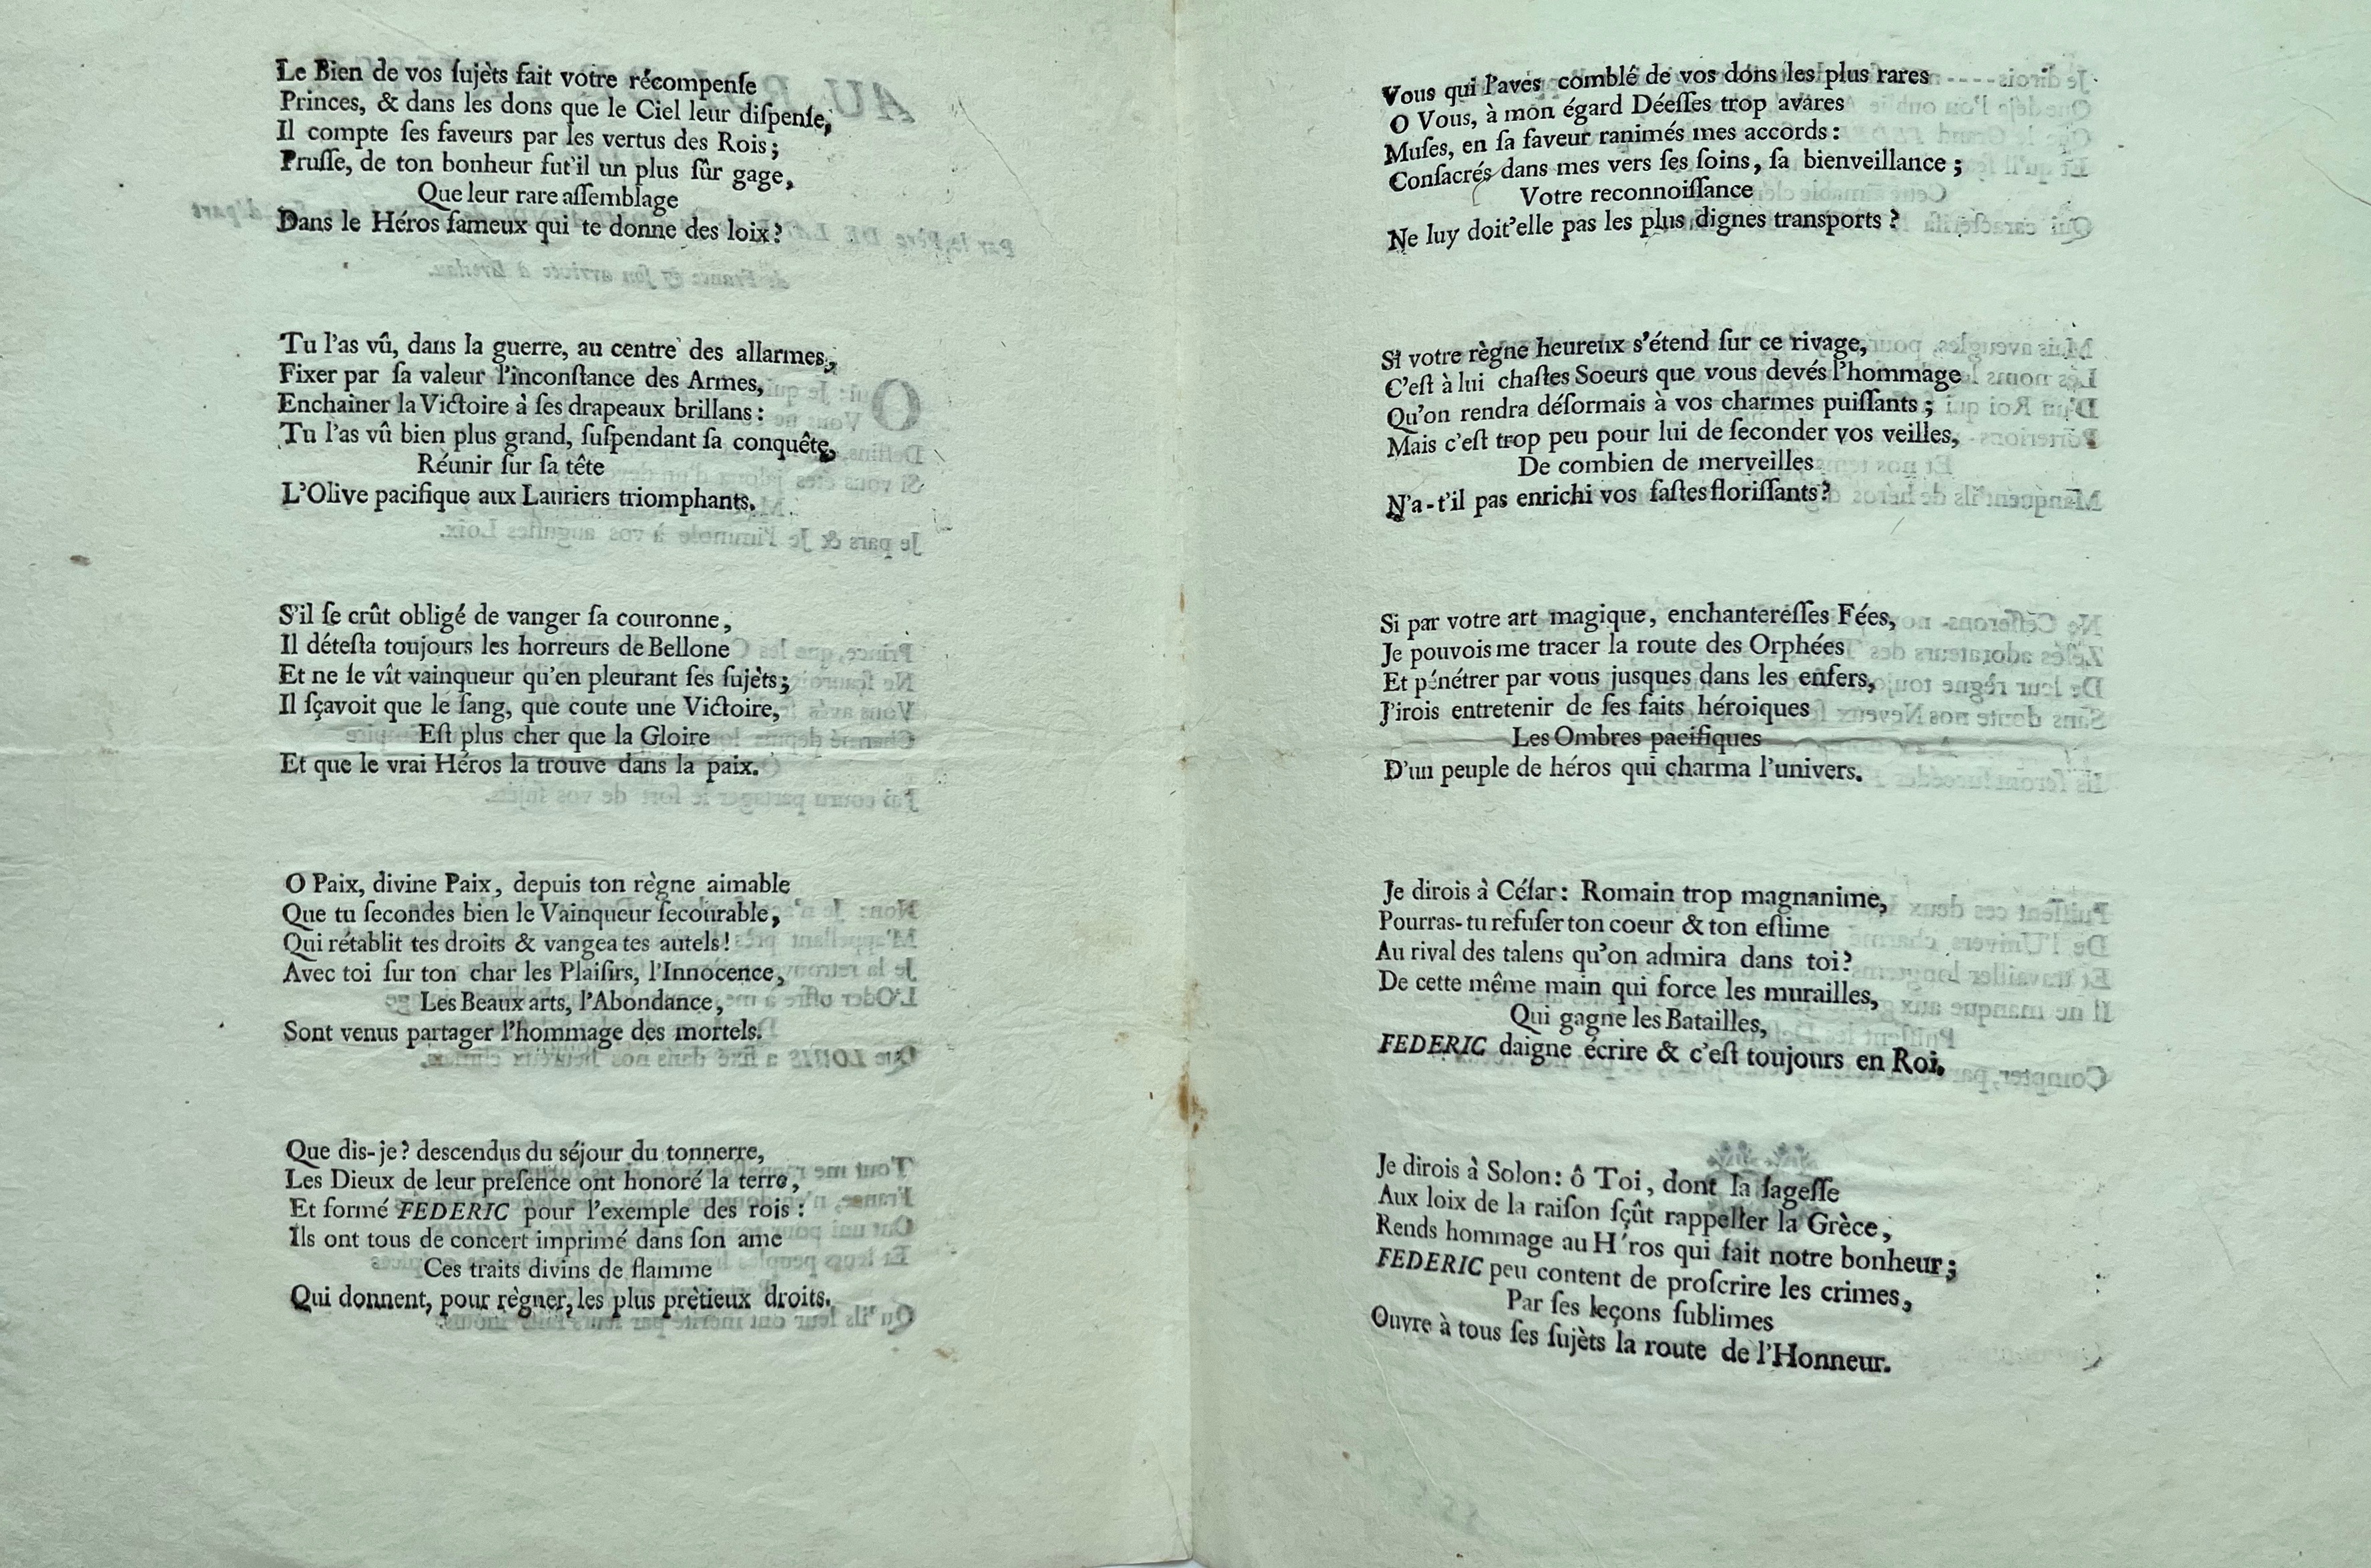 Le Bien de vos ſujèts fait votre récompenſe
Princes, & dans les dons que le Ciel leur diſpenſe,
Il compte ſes faveurs par les vertus des Rois;
Pruſſe, de ton bonheur fut'il un plus ſûr gage,
Que leur rare aſſemblage
Dans le Héros fameux qui te donne des loix?
Tu l'as vû, dans la guerre, au centre des allarmes,
Fixer par ſa valeur l'inconſtance des Armes,
Enchainer la Victoire à ſes drapeaux brillans:
Tu l'as vû bien plus grand, ſuſpendant ſa conquête,
Réunir ſur ſa tête
L'Olive pacifique aux Lauriers triomphants.
S'il ſe crût obligé de vanger ſa couronne,
Il déteſta toujours les horreurs de Bellone
Et ne ſe vît vainqueur qu'en pleurant ſes ſujèts;
Il ſçavoit que le ſang, que coute une Victoire,
Eſt plus cher que la Gloire
Et que le vrai Héros la trouve dans la paix.
O Paix, divine Paix, depuis ton règne aimable
Que tu ſecondes bien le Vainqueur ſecourable,
Qui rétablit tes droits & vangea tes autels!
Avec toi ſur ton char les Plaiſirs, l'Innocence,
Les Beaux arts, l'Abondance,
Sont venus partager l'hommage des mortels.
Que dis-je? descendus du séjour du tonnerre,
Les Dieux de leur preſence ont honoré la terre,
Et formé FEDERIC pour l'exemple des rois:
Ils ont tous de concert imprimé dans ſon ame
Ces traits divins de flamme
Qui donnent, pour règner, les plus prètieux droits.
Vous qui l'avés comblé de vos dons les plus rares
O Vous, à mon égard Déeſſes trop avares
Muſes, en ſa faveur ranimés mes accords:
Conſacrés dans mes vers ſes ſoins, ſa bienveillance;
Votre reconnoiſſance
Ne luy doit'elle pas les plus dignes transports?
Si votre règne heureux s'étend ſur ce rivage,
C'eſt à lui chaſtes Soeurs que vous devés l'hommage
Qu'on rendra déſormais à vos charmes puiſſants;
Mais c'eſt trop peu pour lui de ſeconder vos veilles,
De combien de merveilles
N'a-t'il pas enrichi vos faſtes floriſſants?
Si par votre art magique, enchantereſſes Fées,
Je pouvois me tracer la route des Orphées
Et pénétrer par vous jusques dans les enfers,
J'irois entretenir de ſes faits héroiques
Les Ombres pacifiques
D'un peuple de héros qui charma l'univers.
Je dirois à Céſar: Romain trop magnanime,
Pourras-tu refuſer ton coeur & ton eſtime
Au rival des talens qu'on admira dans toi?
De cette même main qui force les murailles,
Qui gagne les Batailles,
FEDERIC daigne écrire & c'eſt toujours en Roi.
Je dirois à Solon: ô Toi, dont la ſageſſe
Aux loix de la raiſon ſçût rappeller la Grèce,
Rends hommage au H'ros qui fait notre bonheur;
FEDERIC peu content de proſcrire les crimes,
Par ſes leçons ſublimes
Ouvre à tous ſes ſujèts la route de l'Honneur.